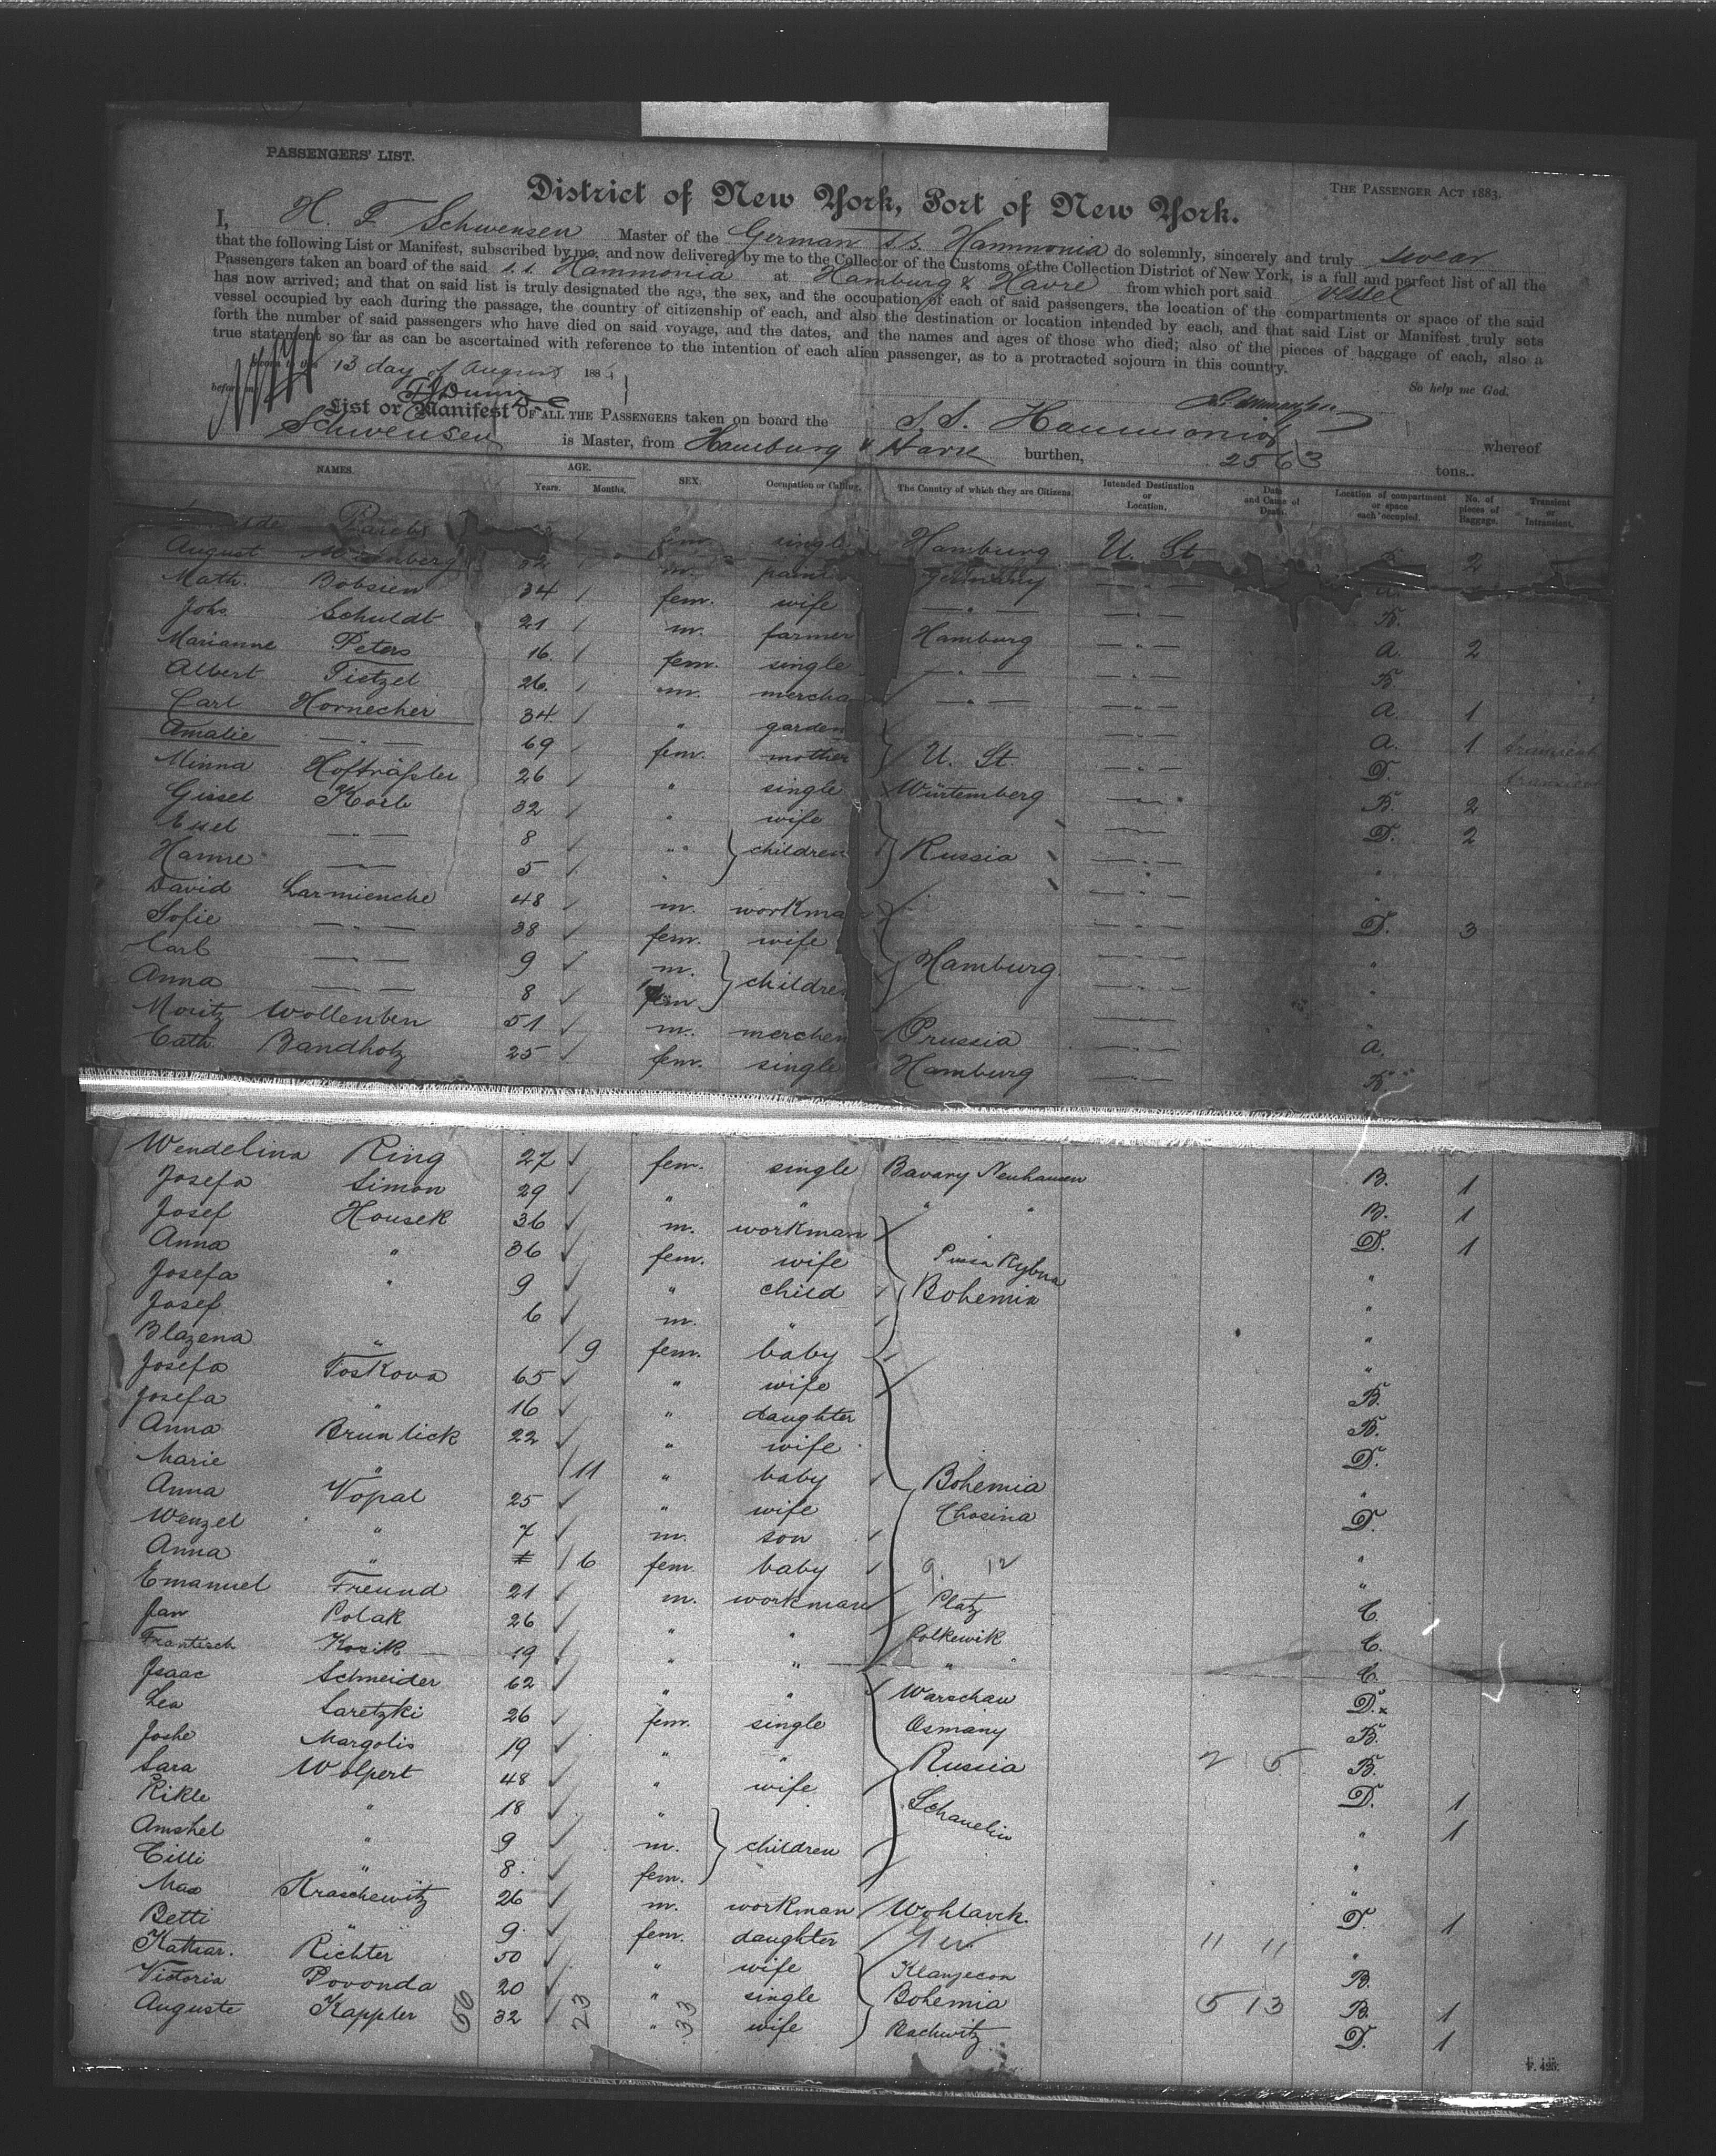 PASSENGERS' LIST.
THE PASSENGER ACT 1883.
District of New York, Port of New York.
I, H. F Schwensen Master of the German S.S. Hammonia do solemnly, sincerely and truly swear
that the following List or Manifest, subscribed by me, and now delivered by me to the Collector of the Customs of the Collection District of New York, is a full and perfect list of all the
Passengers taken an board of the said s.s. Hammonia at Hamburg & Havre from which port said vessel
has now arrived; and that on said list is truly designated the age, the sex, and the occupation of each of said passengers, the location of the compartments or space of the said
vessel occupied by each during the passage, the country of citizenship of each, and also the destination or location intended by each, and that said List or Manifest truly sets
forth the number of said passengers who have died on said voyage, and the dates, and the names and ages of those who died; also of the pieces of baggage of each, also a
true statement so far as can be ascertained with reference to the intention of each alien passenger, as to a protracted sojourn in this country.
13 day of August 188
So help me God.
before me
List or Manifest OF ALL THE PASSENGERS taken on board the S.S. Hammonia whereof
Schwensen is Master, from Hamburg & Havre burthen, 2563 tons..
NAMES. AGE. Years. Months. SEX. Occupation or Calling. The Country of which they are Citizens. Intended Destination or Location. Date and Cause of Death. Location of compartment or space each occupied. No. of pieces of Baggage. Transient or Intransient.
fem. single Hamburg U. St 2
August m. Germany
Math. Bobsien 34 fem. wife B.
Johs. Schuldt 21 m. farmer Hamburg a. 2
Marianne Peters 16. fem. single B
Albert Tietzel 26. m. mercha a. 1
Carl Hornecher 34 " garden a. 1 transient
Amalie 69 fem. mother U. St. D. transient
Minna Hofträßler 26 " single Würtemberg B. 2
Gissel Korb 32 " wife D. 2
8 " children Russia "
Hanne 5 "
David Larmienche 48 m. workma D. 3
Sofie 38 fem. wife "
Carl 9 m. children Hamburg. "
Anna 8 fem
Moritz Wollenben 51 m. merchen Prussia a.
Cath. Bandholz 25 fem. single Hamburg B.
Wendelina Ring 27 fem. single Bavary Neuhausen B. 1
Josefa Simon 29 " " " " B. 1
Josef Housek 36 m. workman D. 1
Anna " 36 fem. wife Rybna "
Josefa " 9 " child Bohemia
Josef 6 m. " "
Blazena " 9 fem. baby "
Josefa Toskova 65 " wife B.
Josefa " 16 " daughter B.
Anna Brunlick 22 " wife D.
Marie " 11 " baby Bohemia "
Anna Vopal 25 " wife Chosina D.
Wenzel " 7 m. son "
Anna " 6 fem. baby 9. 12 "
Emanuel Freund 21 m. workman Platz C.
Jan Polak 26 " " Colkewik C.
Frantisch Kosik 19 " " " " C.
Isaac Schneider 62 " " Warschau D.x
Lea Saretzki 26 fem. single Osmany B.
Joshe Margolis 19 " " Russia 2 5 B.
Sara Wolpert 48 " wife D. 1
Rikle " 18 " children Schauelin " 1
Amshel " 9 m. "
Cilli " 8. fem. "
Max Kraschewitz 26 m. workman Wohlavck. D. 1
Betti " 9. fem. daughter 11 11 "
Kathar. Richter 50 " wife B.
Victoria Povonda 20 " single Bohemia 5 13 B. 1
Auguste Kappler 32 " wife Bachwitz D. 1
56 23 33